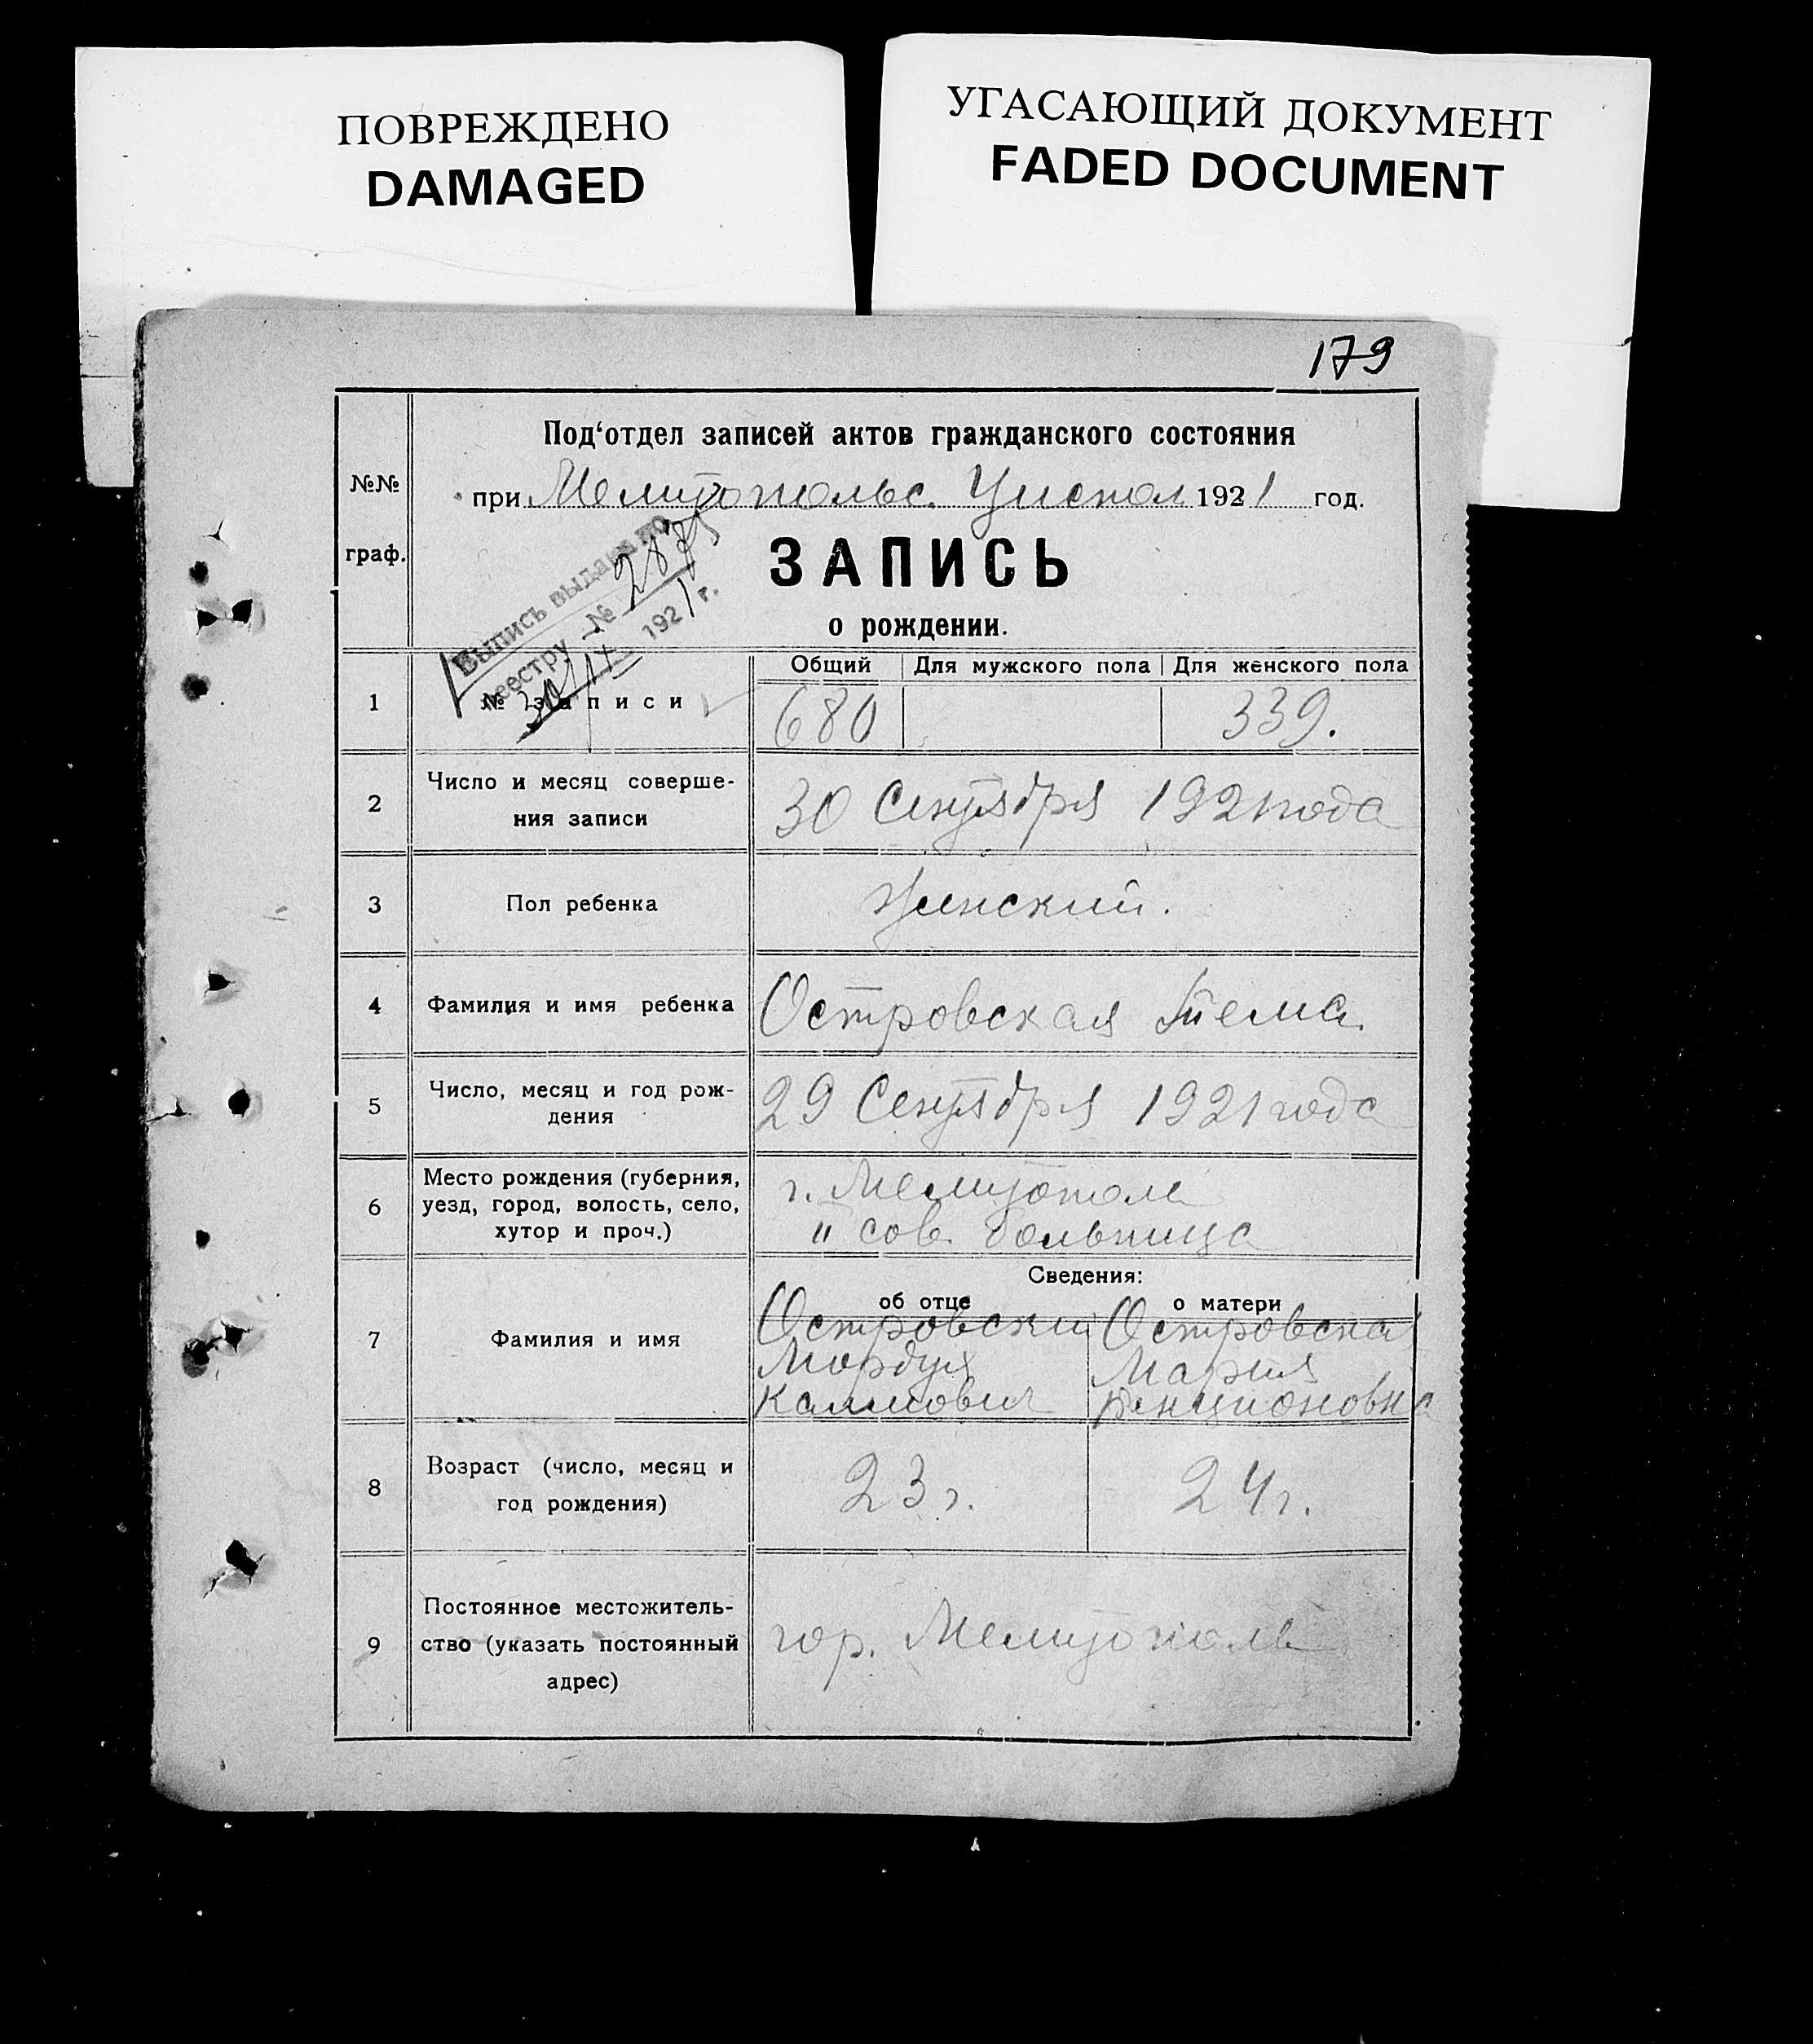 ПОВРЕЖДЕНО
DAMAGED
УГАСАЮЩИЙ ДОКУМЕНТ
FADED DOCUMENT
179
№№ граф.
Под'отдел записей актов гражданского состояния
при Мелитопольс. Уисполк 1921 год.
Выпись выдана по
реестру № 2885
30/IX 1921 г.
ЗАПИСЬ
о рождении.
Общий Для мужского пола Для женского пола
1 № записи 680 339.
2 Число и месяц соверше-
ния записи 30 Сентября 1921 года
3 Пол ребенка Женский.
4 Фамилия и имя ребенка Островская Тема
5 Число, месяц и год рож-
дения 29 Сентября 1921 года
6 Место рождения (губерния,
уезд, город, волость, село,
хутор и проч.) г. Мелитополь
II сов. больница
Сведения:
об отце о матери
7 Фамилия и имя Островский Островская
Мордух Мария
Калмович Бенционовна
8 Возраст (число, месяц и
год рождения) 23 г. 24 г.
9 Постоянное местожитель-
ство (указать постоянный
адрес) гор. Мелитополь